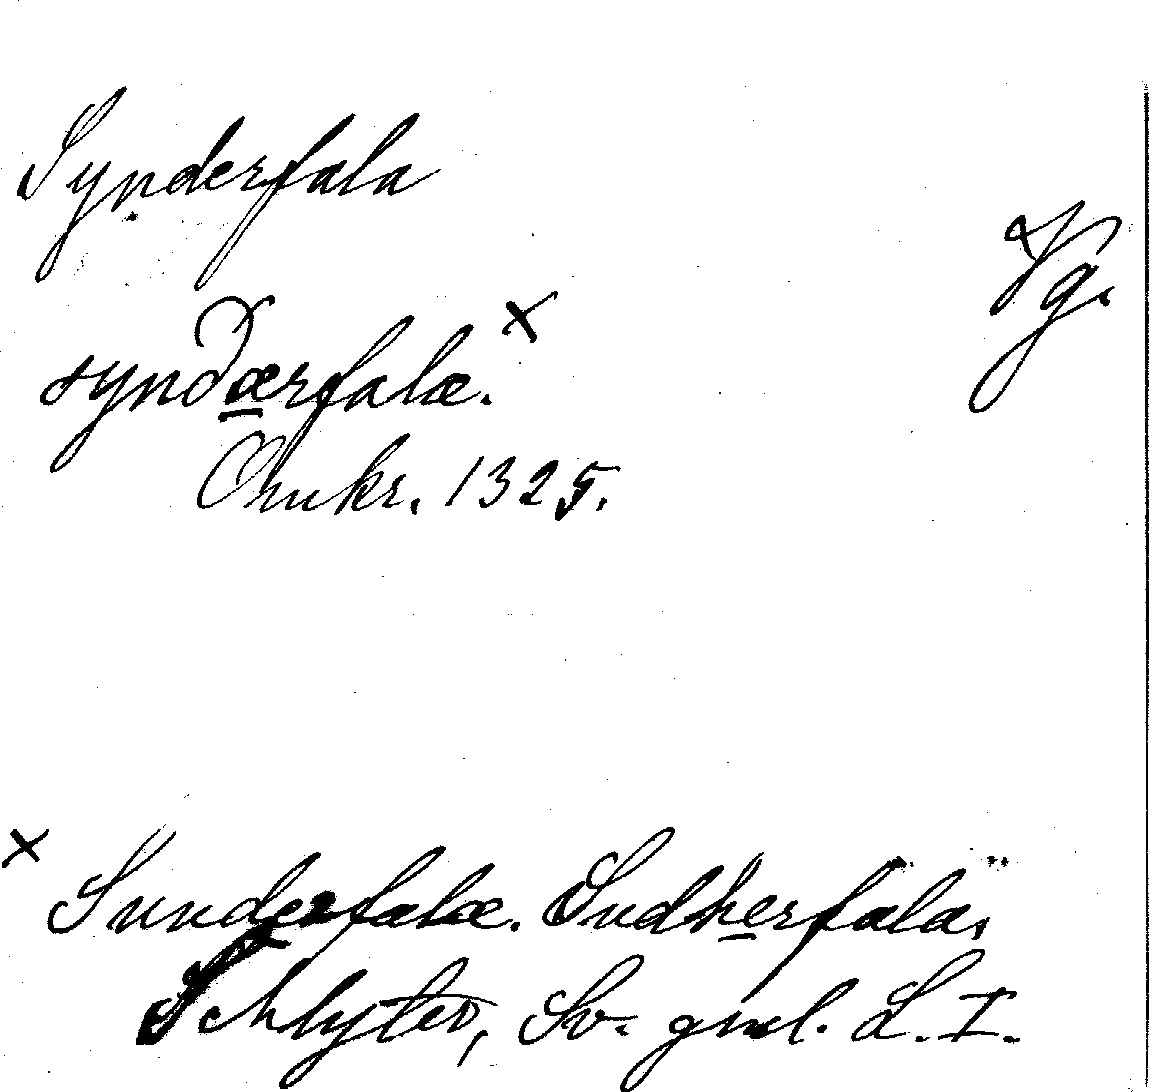 Synderfala
Vg.
syndærfalæ. ×
Omkr. 1325.
× Sundærfalæ. Sudherfala,
Schlyter, Sv. gml. L. I.